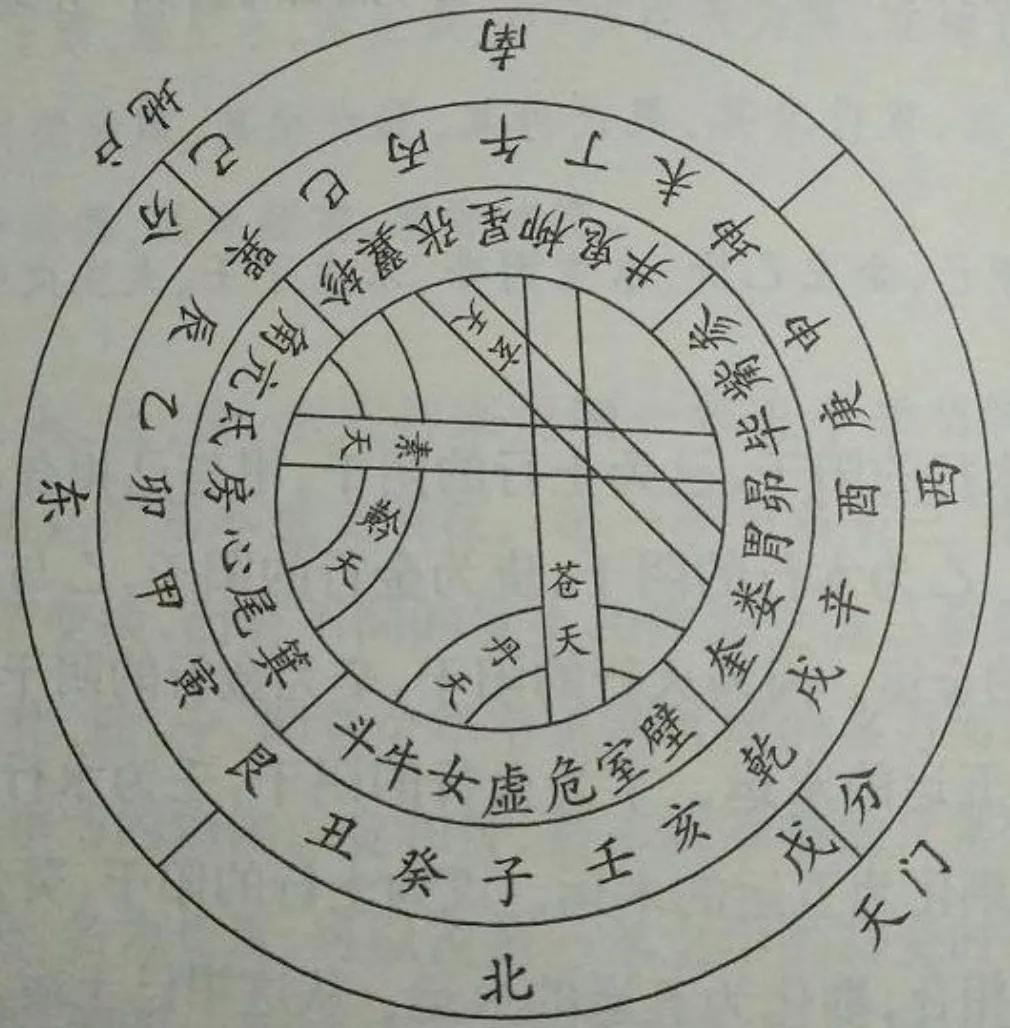 南
西
北
东
地户
己分
天门
戊分
子癸丑艮寅甲卯乙辰巽巳丙午丁未坤申庚酉辛戌乾亥壬
角亢氐房心尾箕
斗牛女虚危室壁
奎娄胃昴毕觜参
井鬼柳星张翼轸
玄天
素天
黅天
苍天
丹天